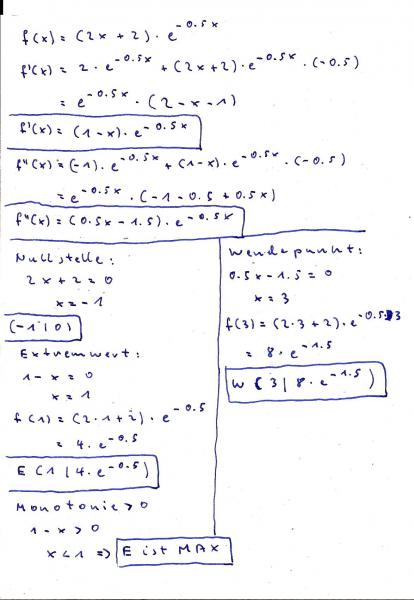 f(x) = (2x + 2) · e^-0.5x
f'(x) = 2 · e^-0.5x + (2x + 2) · e^-0.5x · (-0.5)
= e^-0.5x · (2 - x - 1)
f'(x) = (1 - x) · e^-0.5x
f''(x) = (-1) · e^-0.5x + (1 - x) · e^-0.5x · (-0.5)
= e^-0.5x · (-1 - 0.5 + 0.5x)
f''(x) = (0.5x - 1.5) · e^-0.5x
Nullstelle:
2x + 2 = 0
x = -1
(-1 | 0)
Extremwert:
1 - x = 0
x = 1
f(1) = (2·1 + 2) · e^-0.5
= 4 · e^-0.5
E (1 | 4 · e^-0.5)
Monotonie > 0
1 - x > 0
x < 1 => E ist MAX
Wendepunkt:
0.5x - 1.5 = 0
x = 3
f(3) = (2·3 + 2) · e^-0.5·3
= 8 · e^-1.5
W (3 | 8 · e^-1.5)